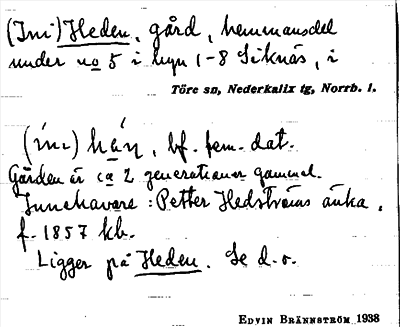 (Ini) Heden, gård, hemmansdel
under no 5 i byn 1-8 Siknäs, i
Töre sn, Nederkalix tg, Norrb. l.
hán, bf. fem. dat.
Gården är ca 2 generationer gammal.
Innehavare: Petter Hedströms änka,
f. 1857 kb.
Ligger på Heden. Se d. o.
EDVIN BRÄNNSTRÖM 1938